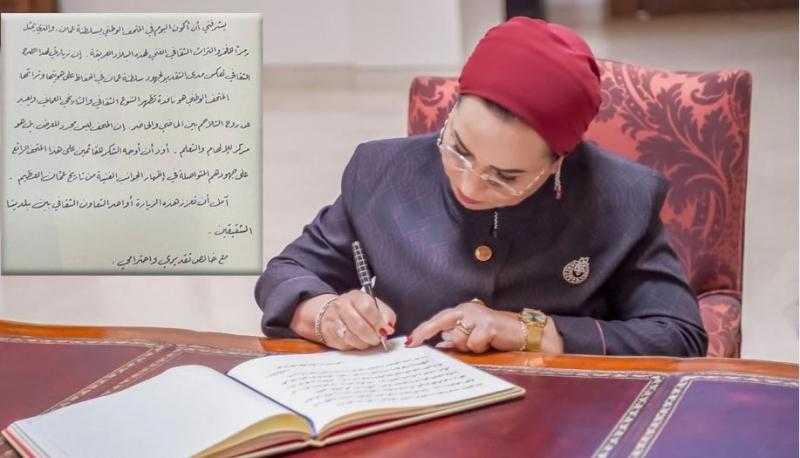 يشرفني أن أكون اليوم في المتحف الوطني بسلطنة عُمان، والذي يمثل
رمزاً للفخر والتراث الثقافي الغني لهذه البلاد العريقة. إن زيارتي لهذا الصرح
الثقافي تعكس مدى التقدير لجهود سلطنة عمان في الحفاظ على هويتها وتراثها
المتحف الوطني هو نافذة تظهر التنوع الثقافي والتاريخي العماني ويعبر
عن روح التلاحم بين الماضي والحاضر. إن المتحف ليس مجرد للعرض بل هو
مركز للإلهام والتعلم. أود أن أوجه الشكر للقائمين على هذا المتحف الرائع
على جهودهم المتواصلة في إظهار الجوانب الغنية من تاريخ عُمان العظيم.
آمل أن تعزز هذه الزيارة أواصر التعاون الثقافي بين بلدينا
الشقيقين.
مع خالص تقديري واحترامي.